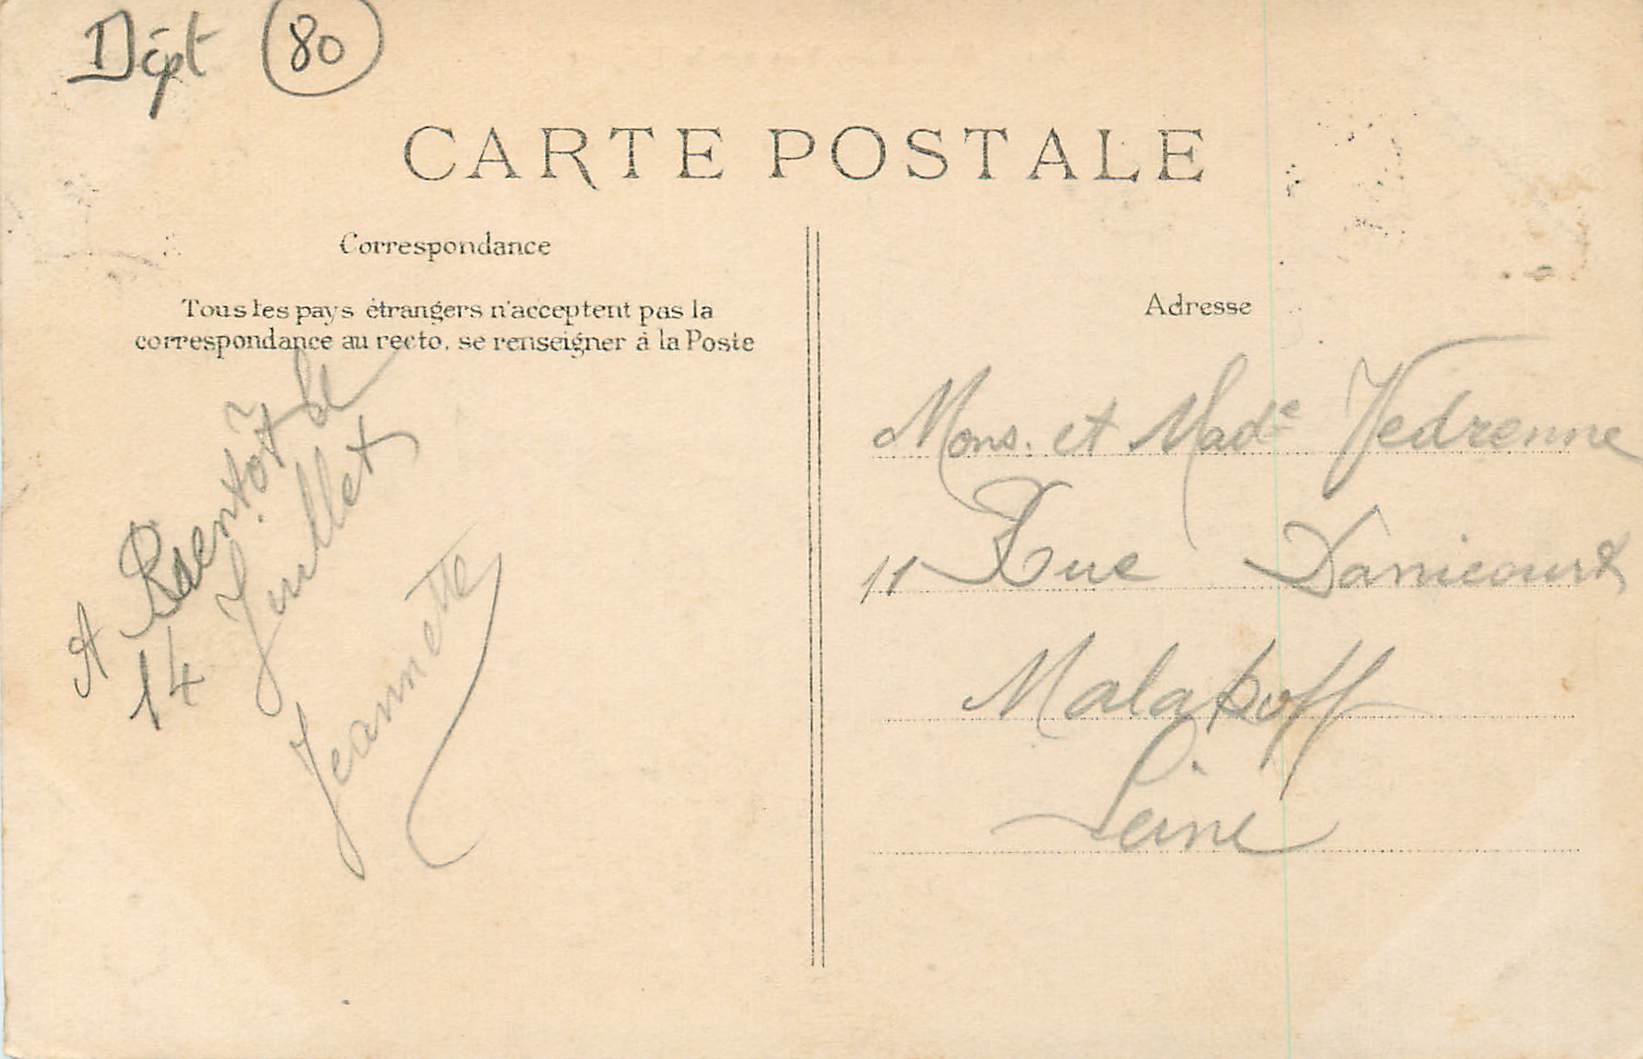 Dépt 80
CARTE POSTALE
Correspondance
Tous les pays étrangers n'acceptent pas la
correspondance au recto, se renseigner à la Poste
A Bientôt le
14 Juillet
Jeannette
Adresse
Mons. et Made Vedrenne
11 Rue Danicourt
Malakoff
Seine